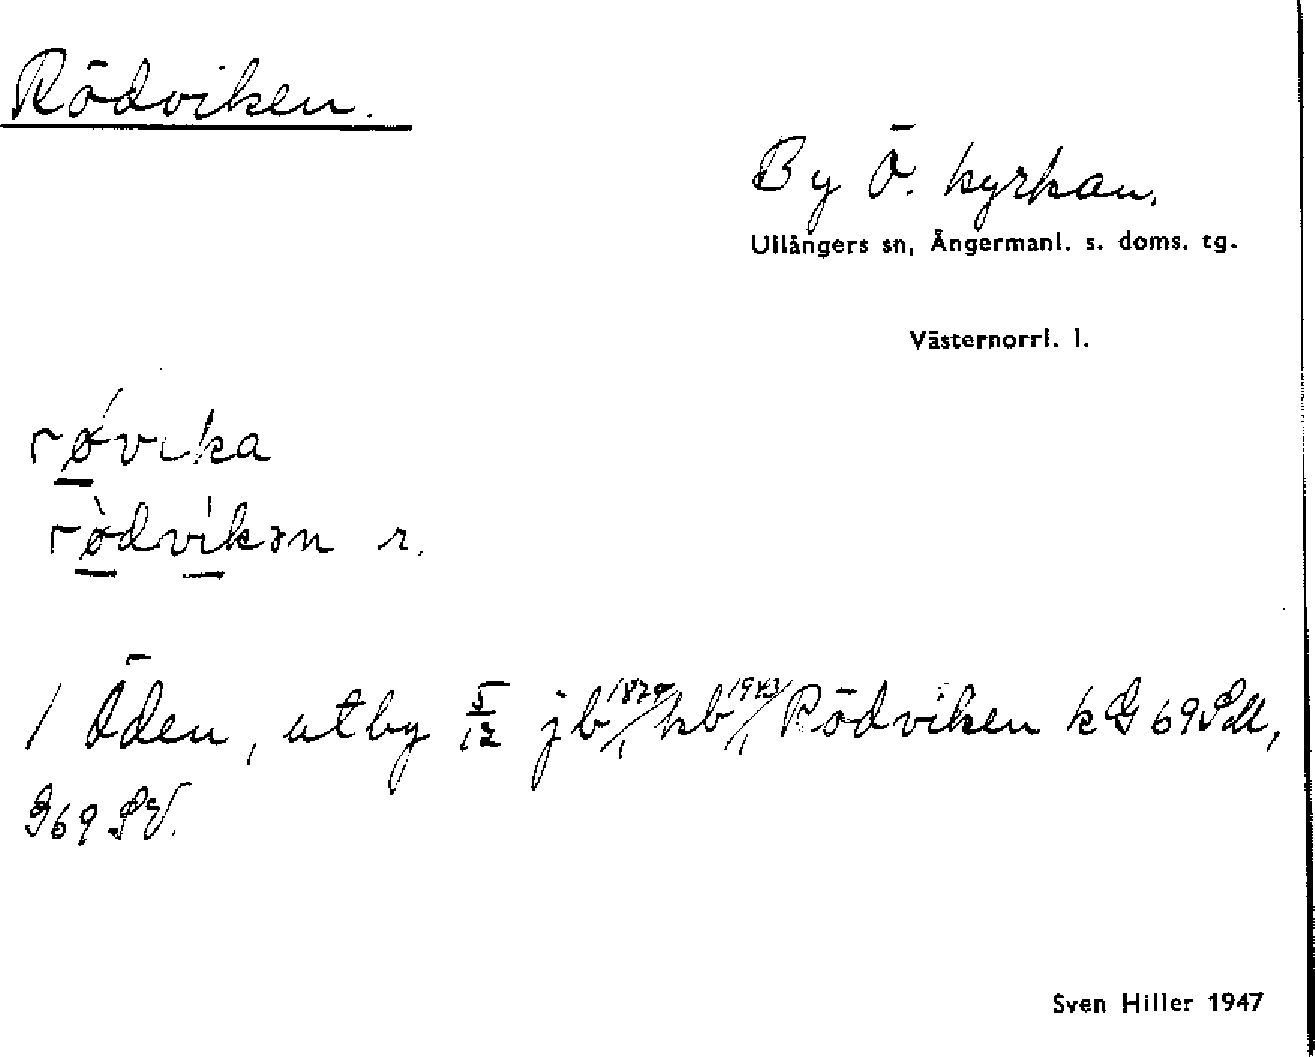 Rödviken.
By Ö. kyrkan.
Ullångers sn, Ångermanl. s. doms. tg.
Västernorrl. l.
røvika
rødvikən r.
1 Öden, utby 5/12 jb 1879/1 kb 1943/1 Rödviken k G 69 SU,
G69 SV.
Sven Hiller 1947